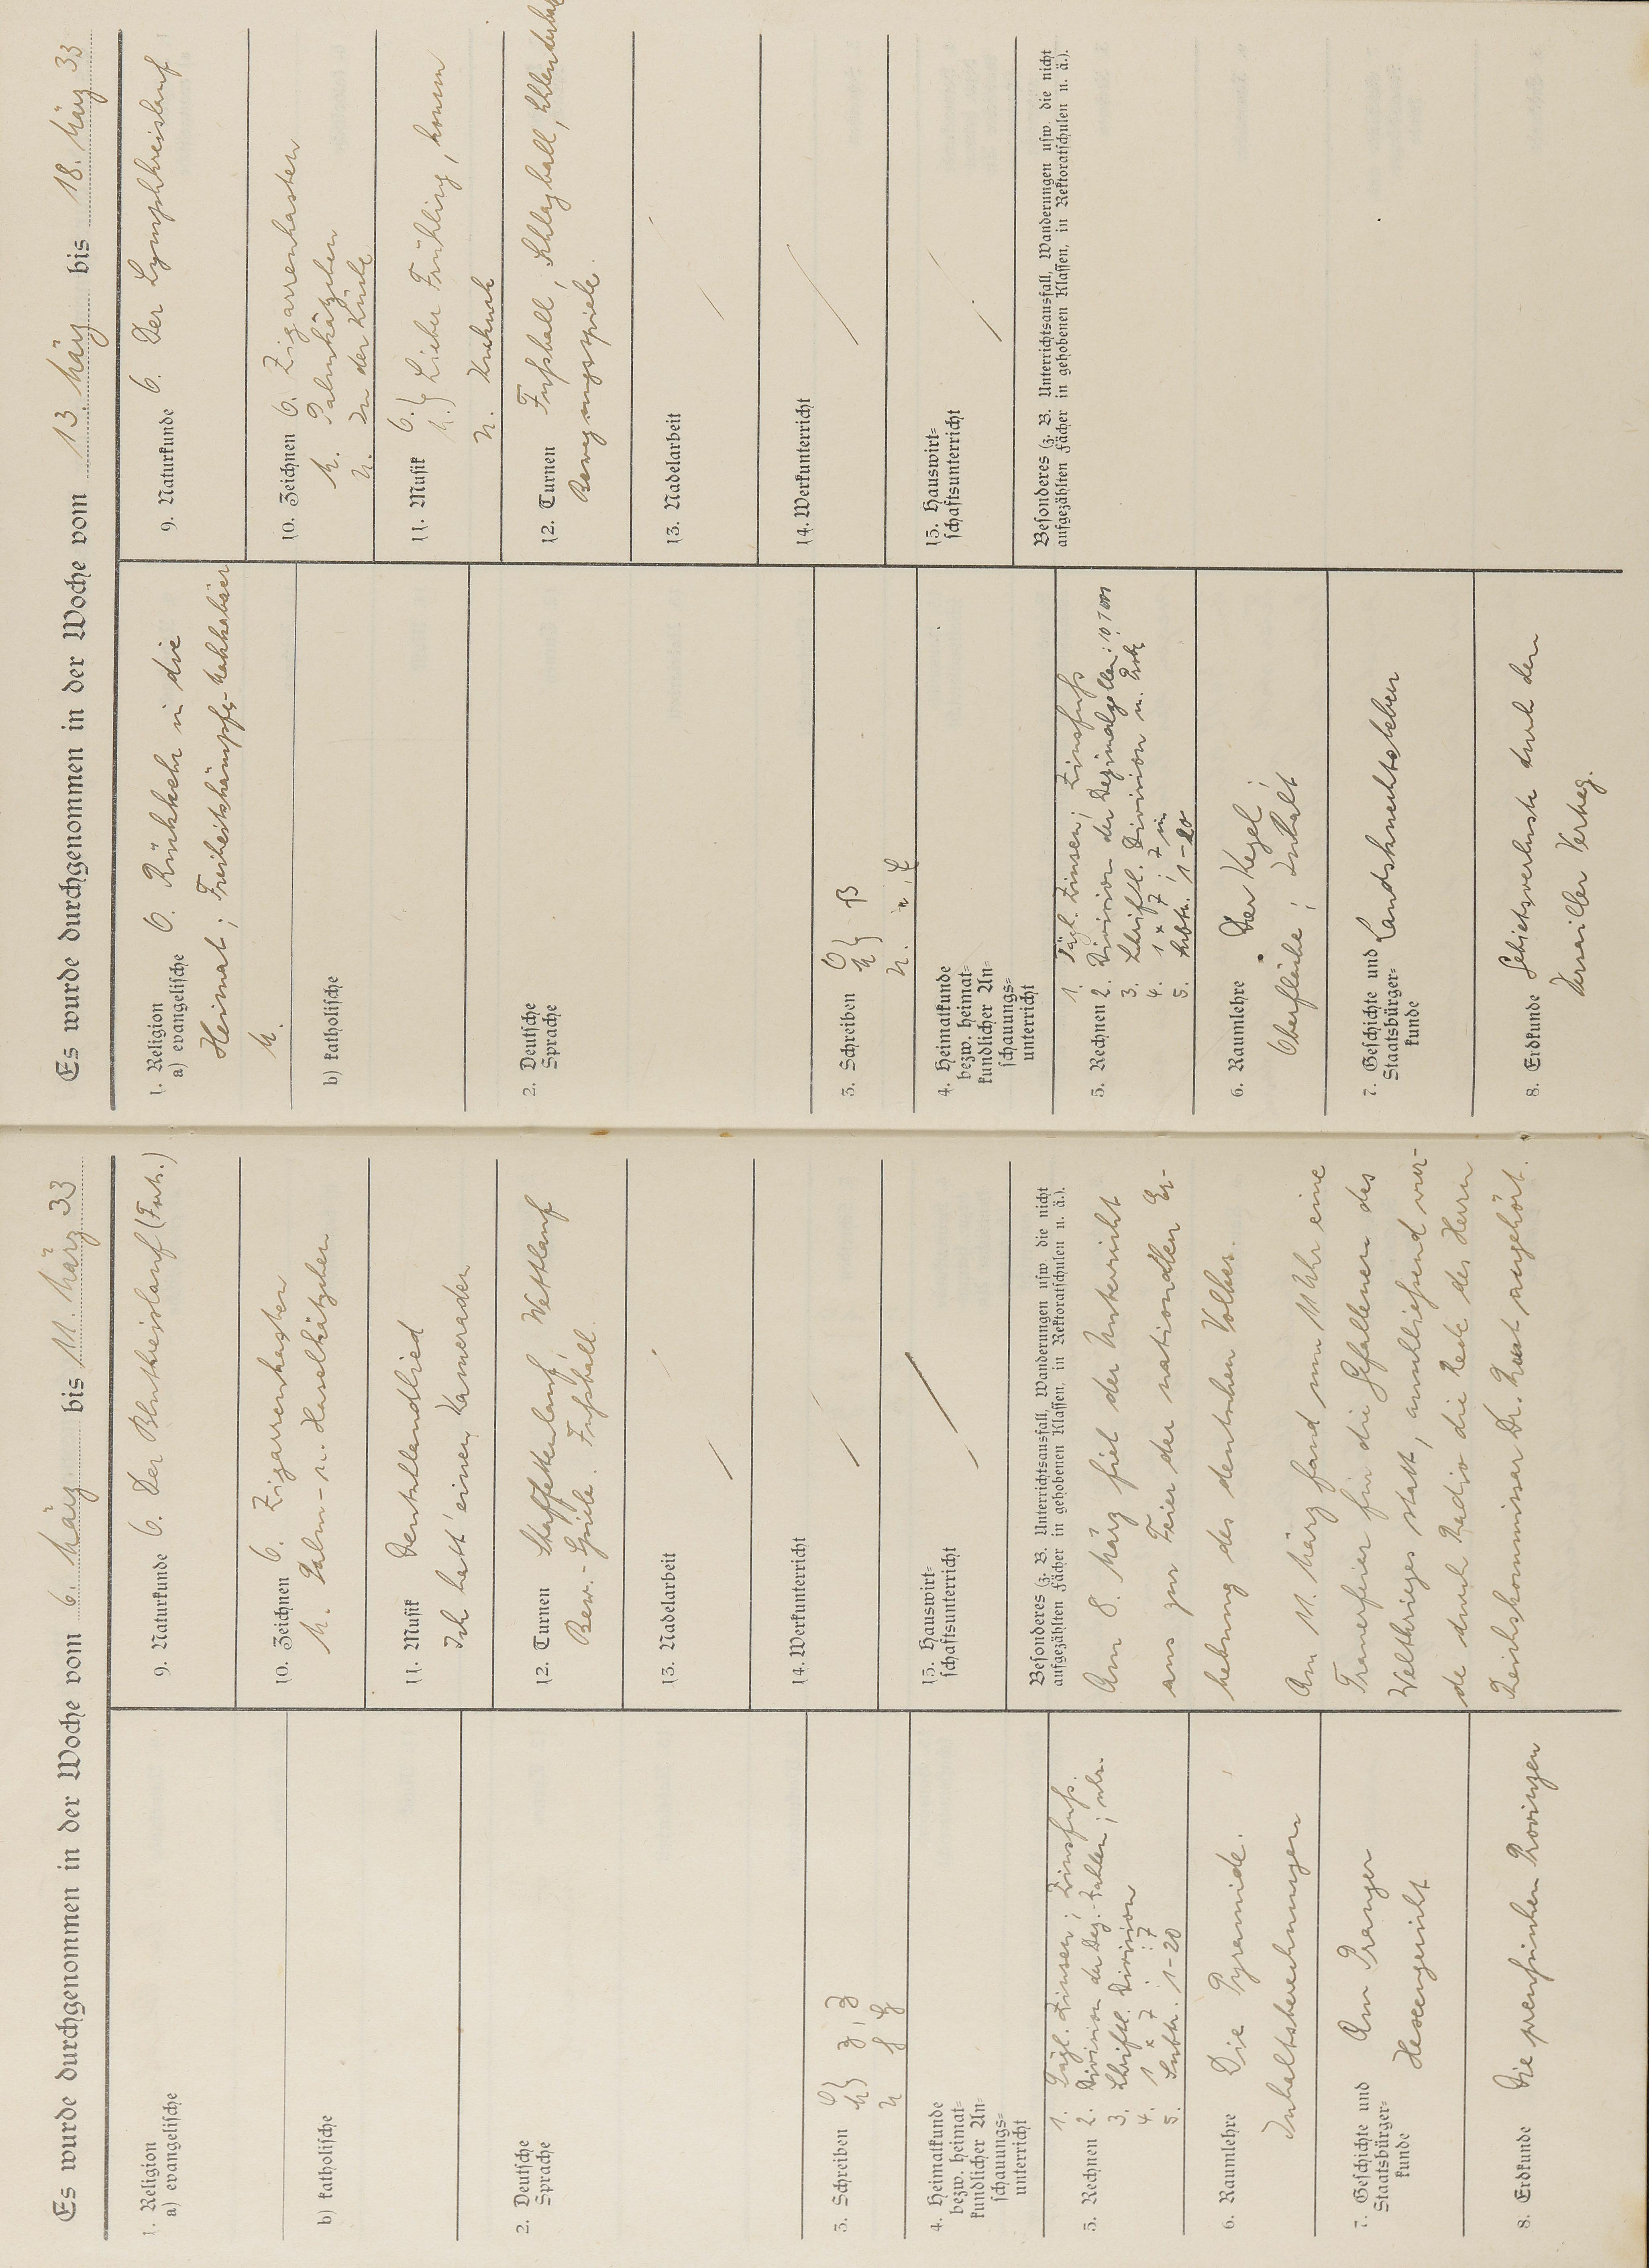 Es wurde durchgenommen in der Woche vom 6. März bis 11. März 33
1. Religion
a) evangelische
b) katholische
2. Deutsche
Sprache
3. Schreiben O.
M. } z, Z
U.
4. Heimatkunde
bezw. heimat-
kundlicher An-
schauungs-
unterricht
1. Tägl. Zinsen; Zinsfuß.
5. Rechnen 2. Division der Dez.-Zahlen;
3. Schriftl. Division
4. 1 x 7 ; : 7
5. Subtr. 1-20
6. Raumlehre Die Pyramide.
Inhaltsberechnungen
7. Geschichte und
Staatsbürger-
kunde
Am Pranger
Hexengericht
8. Erdkunde Die preußischen Provinzen
9. Naturkunde O. Der Blutkreislauf
10. Zeichnen O. Zigarrenkasten
M. Palm- u. Haselkätzchen
11. Musik Deutschlandlied
Ich hatt' einen Kameraden
12. Turnen Staffettenlauf, Wettlauf
Bew.-Spiele. Fußball
13. Nadelarbeit
14. Werkunterricht
15. Hauswirt-
schaftsunterricht
Besonderes (z. B. Unterrichtsausfall, Wanderungen usw. die nicht
aufgezählten Fächer in gehobenen Klassen, in Rektoratschulen u. ä.).
Am 8. März fiel der Unterricht
aus zur Feier der nationalen Er-
hebung des deutschen Volkes.
Am 11. März fand um 11 Uhr eine
Trauerfeier für die Gefallenen des
Weltkrieges statt, anschließend wur-
de durch Radio die Rede des Herrn
Reichskommissar Dr. Rust angehört.
Es wurde durchgenommen in der Woche vom 13. März bis 18. März 33
1. Religion
a) evangelische O. Rückkehr in die
Heimat; Freiheitskämpfe-Makkabäer
M.
b) katholische
2. Deutsche
Sprache
3. Schreiben O.
M. } ß
U.
4. Heimatkunde
bezw. heimat-
kundlicher An-
schauungs-
unterricht
1. Tägl. Zinsen; Zinsfuß
5. Rechnen 2. Division der Dezimalzahlen
3. Schriftl. Division u.
4. 1 x 7 ; 7 in
5. Subtr. 1-20
6. Raumlehre Der Kegel;
Oberfläche; Inhalt
7. Geschichte und
Staatsbürger-
kunde
Landsknechtsleben
8. Erdkunde Gebietsverluste durch den
Versailler Vertrag.
9. Naturkunde O. Der Lymphkreislauf
10. Zeichnen O. Zigarrenkasten
M. Palmkätzchen
U. In der Küche
11. Musik O.
M. } Lieber Frühling, komm
U. Kuckuck
12. Turnen Fußball, Schlagball, Schleuderball
Bewegungsspiele.
13. Nadelarbeit
14. Werkunterricht
15. Hauswirt-
schaftsunterricht
Besonderes (z. B. Unterrichtsausfall, Wanderungen usw. die nicht
aufgezählten Fächer in gehobenen Klassen, in Rektoratschulen u. ä.).